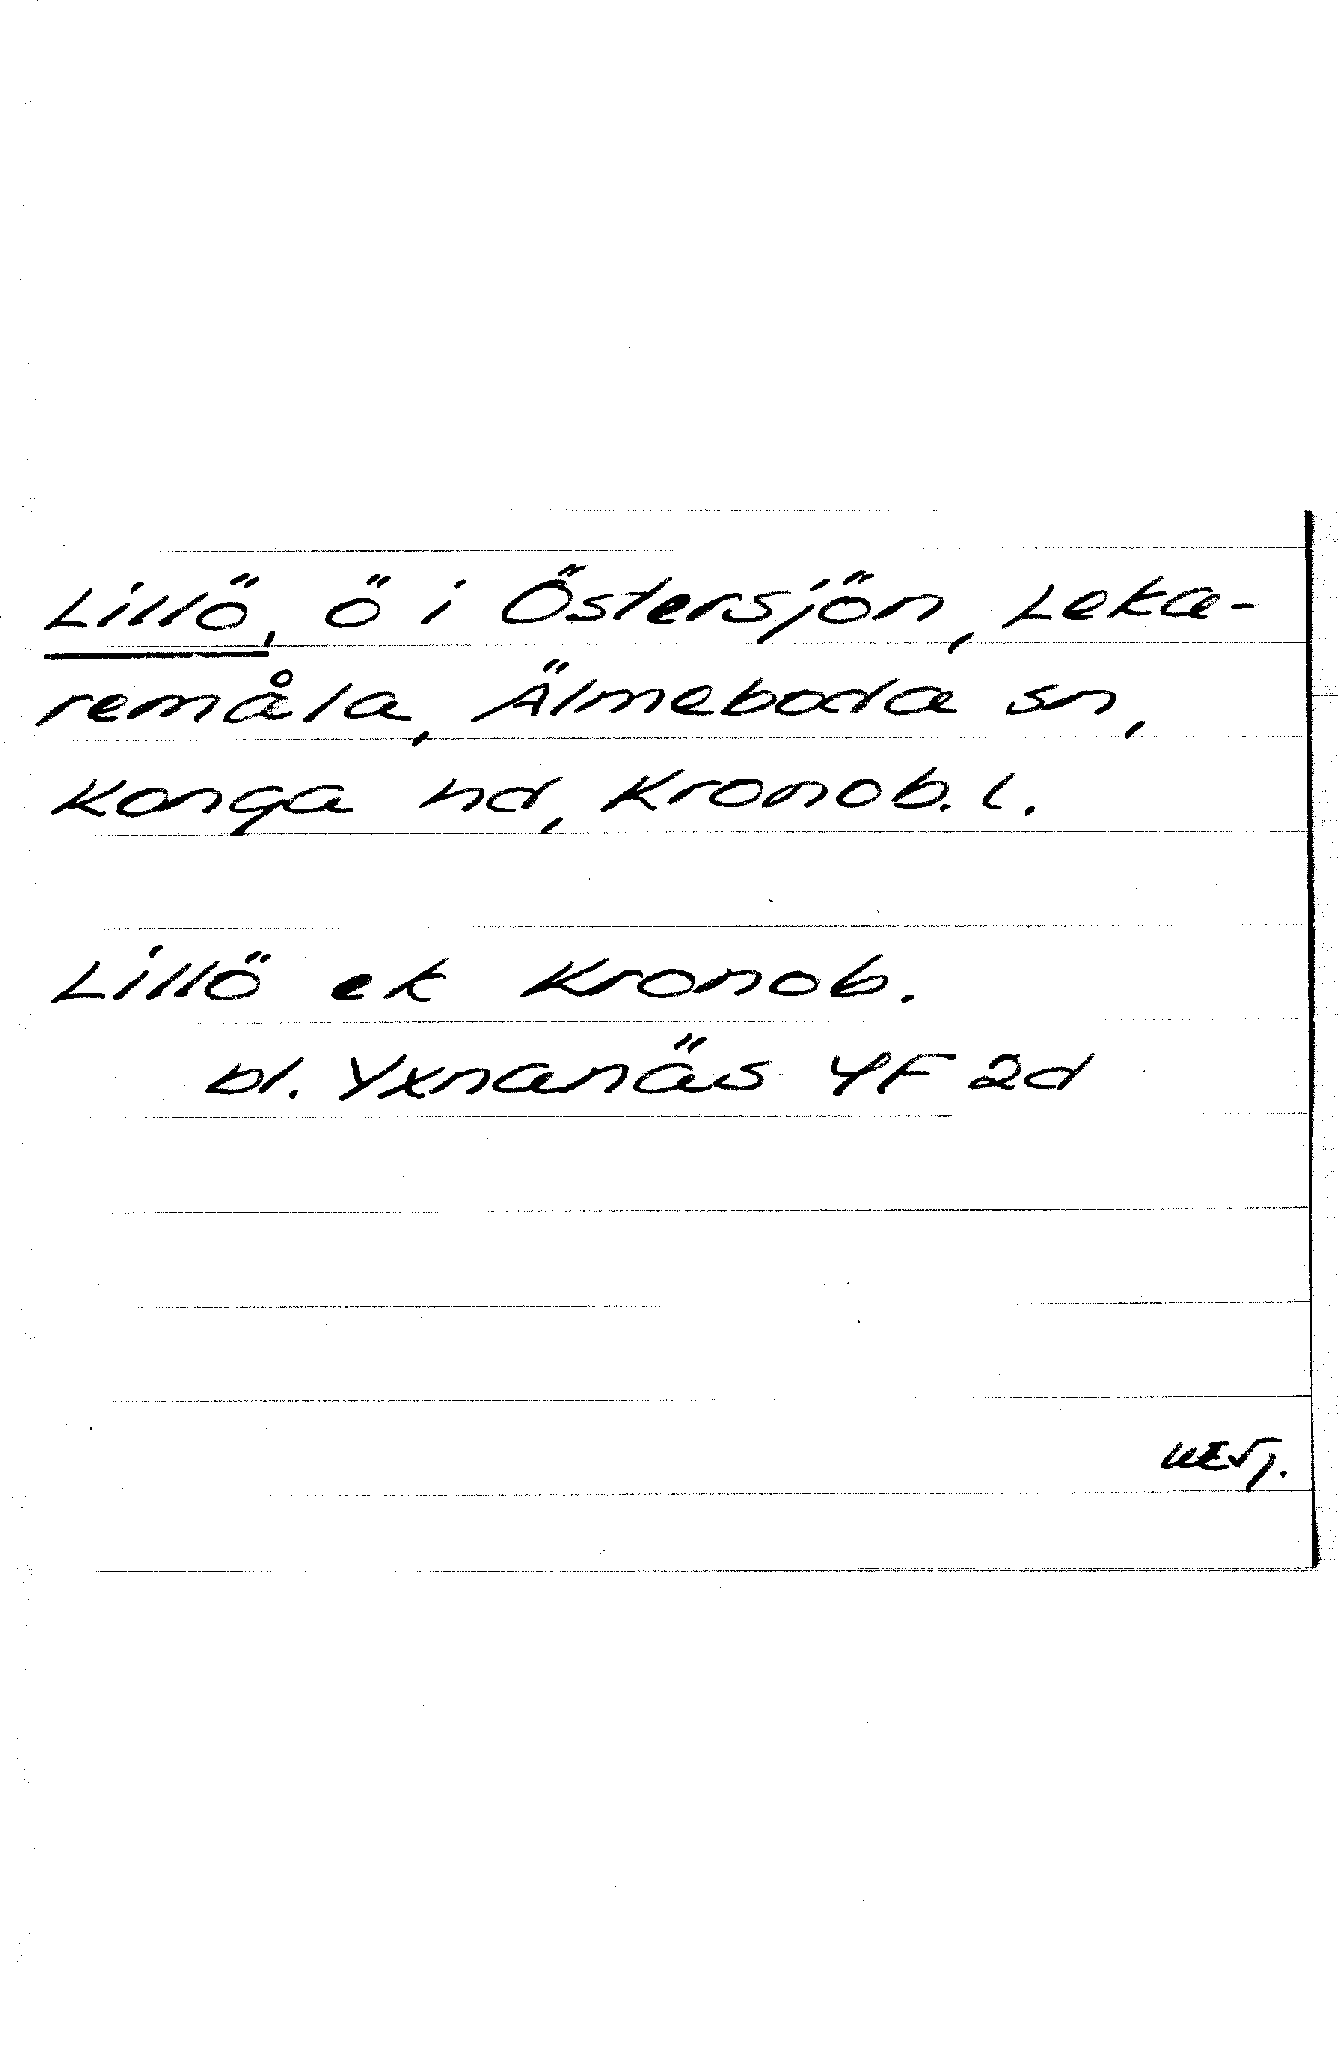 Lillö, ö i Östersjön, Leka-
remåla, Älmeboda sn,
Konga hd, Kronob. l.
Lillö ek Kronob.
bl. Yxnanäs 4F 2d